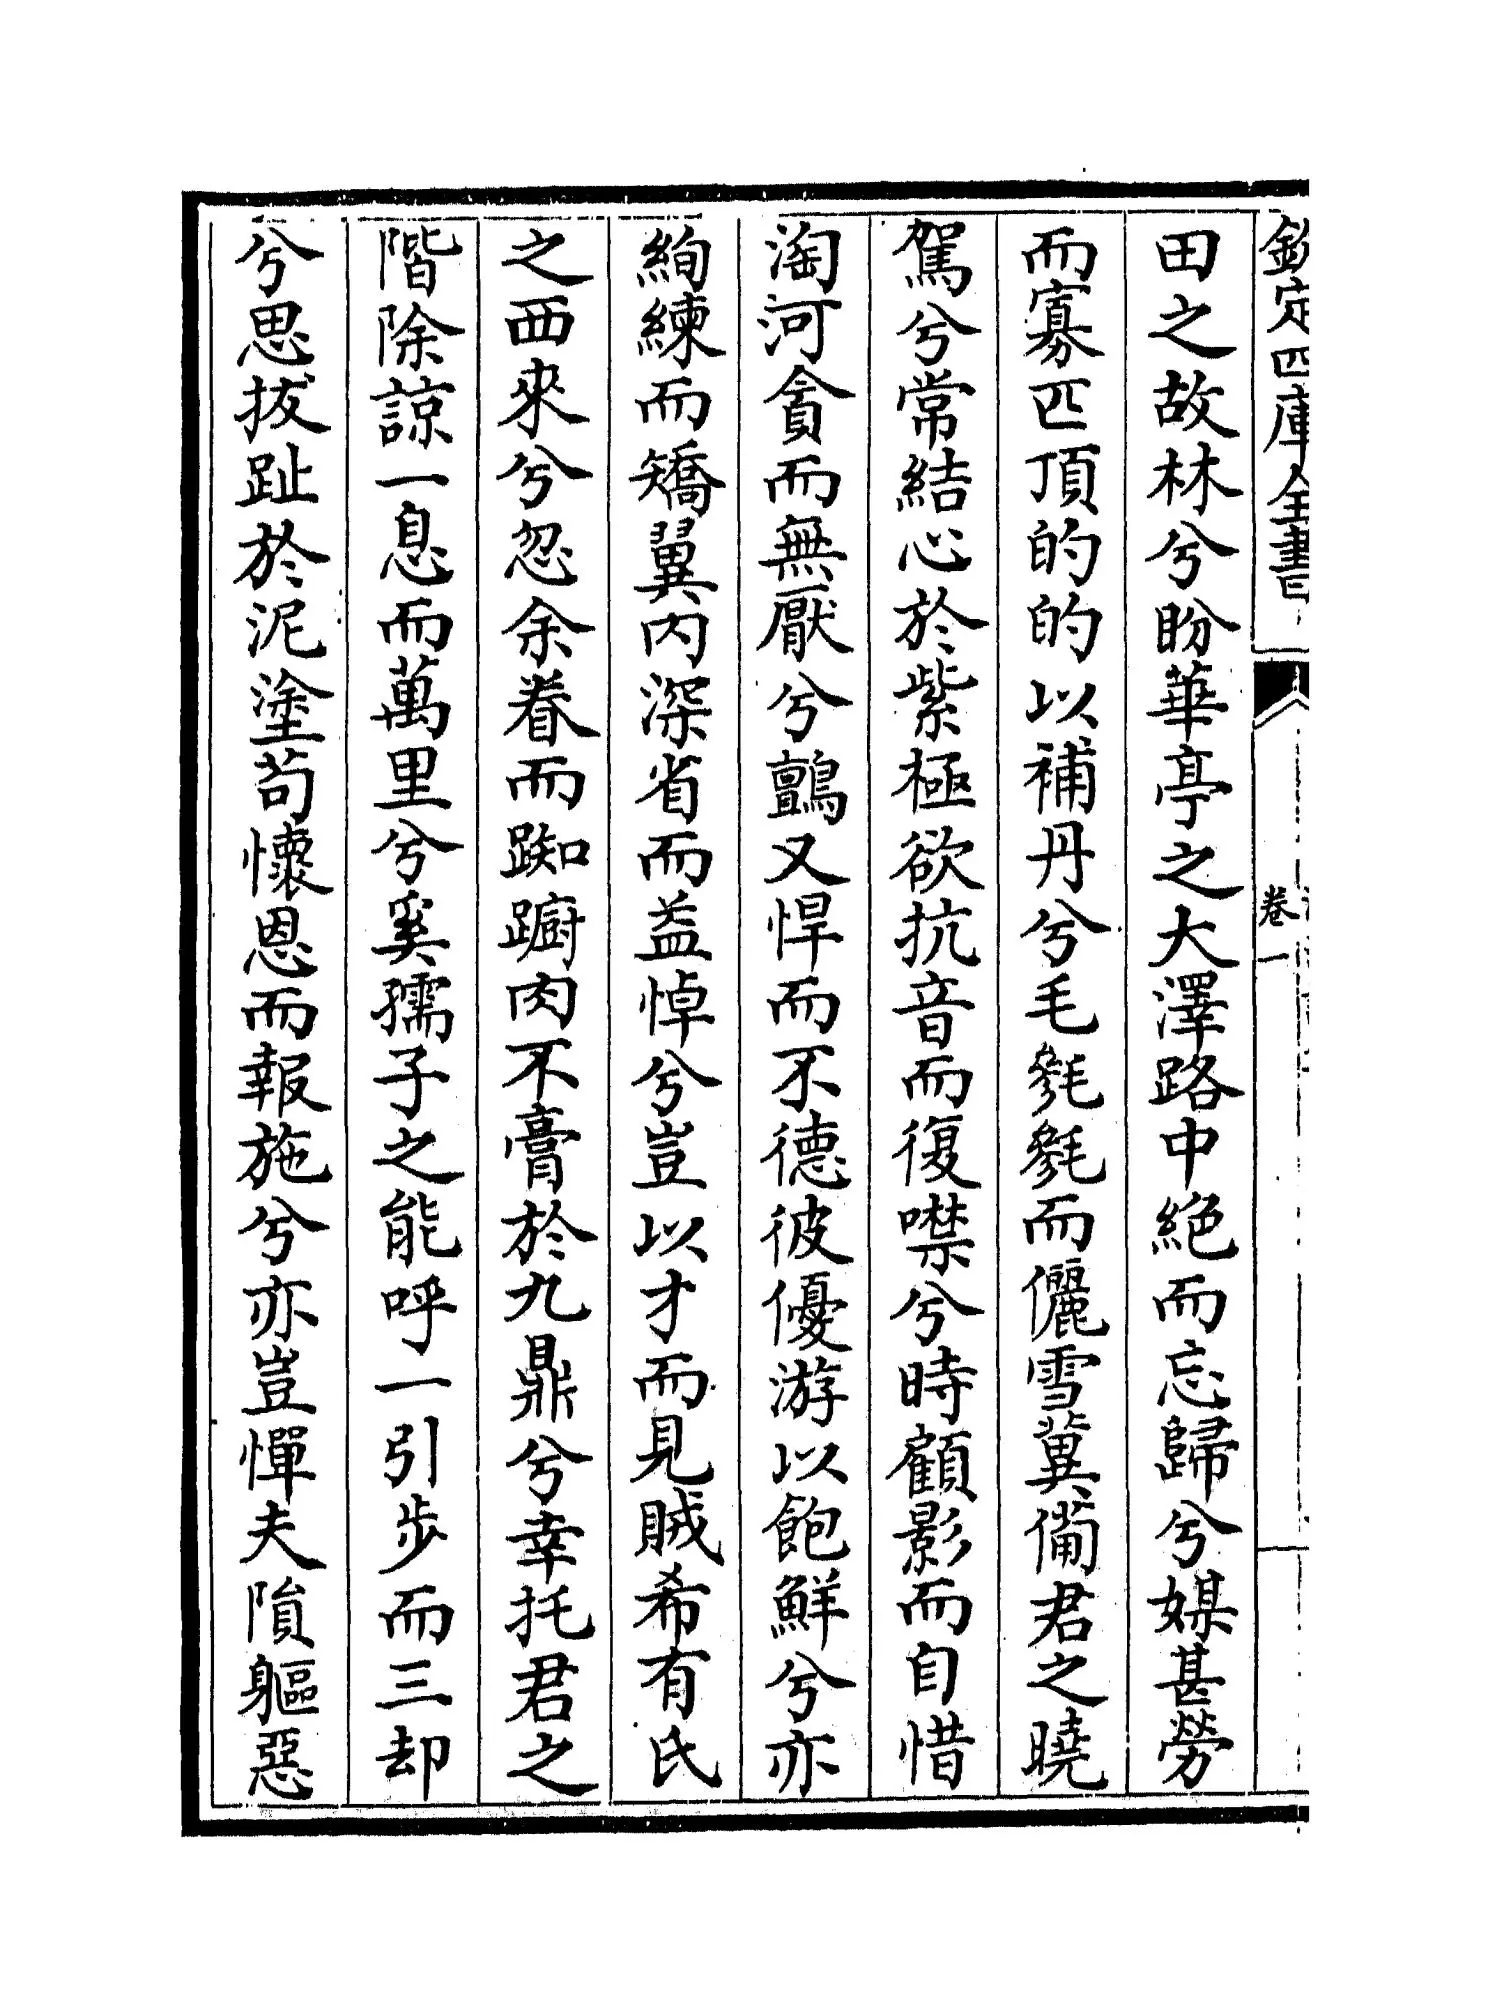 欽定四庫全書
卷一
田之故林兮盼華亭之大澤路中絶而忘歸兮媒甚勞
而寡匹頂的的以補丹兮毛毿毿而儷雪冀備君之曉
駕兮常結心於紫極欲抗音而復噤兮時顧影而自惜
淘河貪而無厭兮鸇又悍而不德彼優游以飽鮮兮亦
絢練而矯翼内深省而益悼兮豈以才而見賊希有氏
之西來兮忽余眷而踟蹰肉不膏於九鼎兮幸托君之
階除諒一息而萬里兮奚孺子之能呼一引步而三却
兮思拔趾於泥塗苟懷恩而報施兮亦豈憚夫隕軀惡